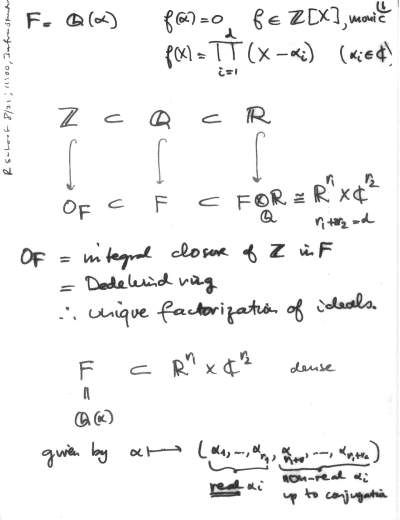 F = ℚ(α) f(α)=0 f ∈ ℤ[X], monic
f(X) = ∏_{i=1}^{d} (X − α_i) (α_i ∈ ℂ)
ℤ ⊂ ℚ ⊂ ℝ
O_F ⊂ F ⊂ F ⊗_ℚ ℝ ≅ ℝ^{r_1} × ℂ^{r_2}
O_F = integral closure of ℤ in F
= Dedekind ring
∴ unique factorization of ideals.
F ⊂ ℝ^{r_1} × ℂ^{r_2} dense
||
ℚ(α)
given by α ↦ (α_1, ..., α_{r_1}, α_{r_1+1}, ..., α_{r_1+r_2})
real α_i non-real α_i
up to conjugation